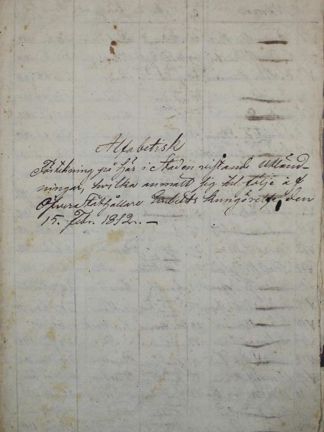 Alfabetisk
Förtekning på här i staden vistande Utländ-
ningar, hvilka anmält sig til följe af
Öfver Ståthållare Embetets Kungörelse den
15. Febr. 1812. —